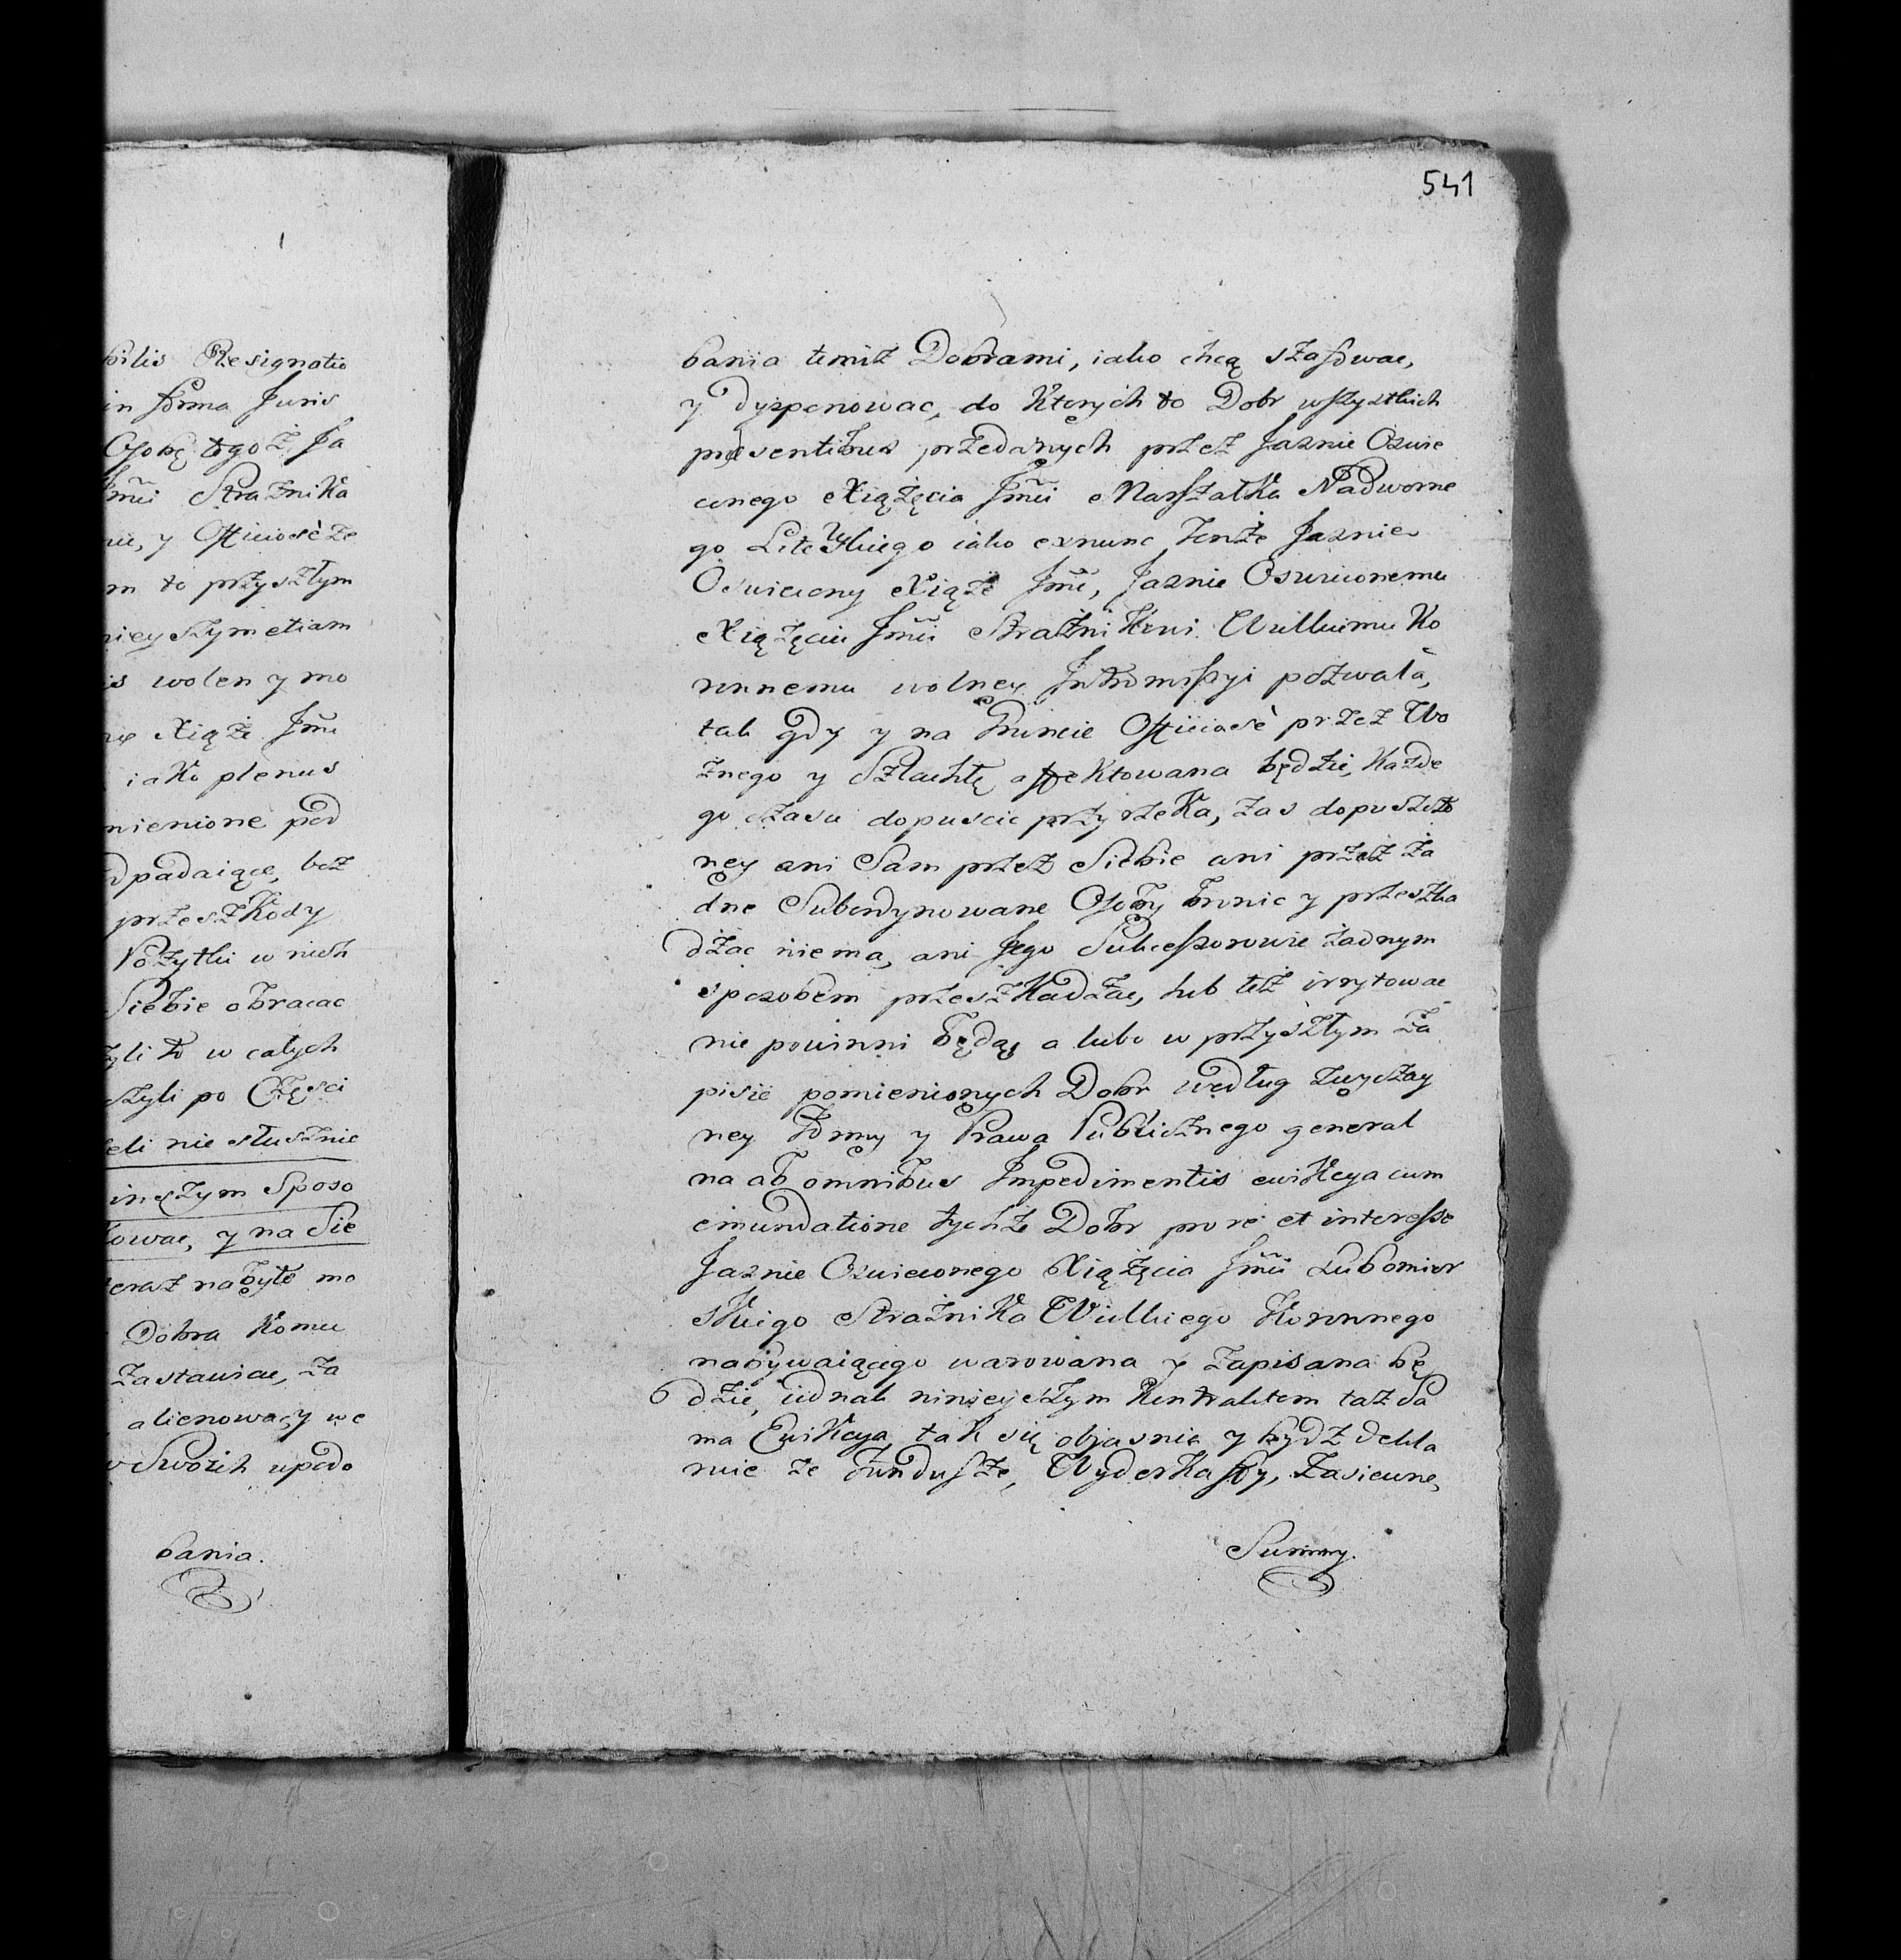 bilis Resignatio
in forma Juris
Osobę tegoż Ja
Jmci Straznika
nie, y Officiose ze
m to przyszłym
nieyszym etiam
is wolen y mo
Xiąże Jmć
iako plenus
mienione pod
dpadaiące, bez
przeszkody
Pożytki w nich
Siebie obracac
zyli to w całych
czyli po Częsci
eli nie słusznie
inszym Sposo
owac, y na Sie
teraz nabyte mo
Dobra komu
Zastawiac, za
alienowac, y we
w Swoich upodo
bania.
541
bania temiż Dobrami, iako chcą szafowac,
y dysponowac, do ktorych to Dobr wszystkich
presentibus przedanych przez Jasnie Oswie
conego Xiążęcia Jmći Marszałka Nadworne
go Litewskiego iako exnunc tenże Jasnie
Oswiecony Xiąże Jmć, Jasnie Oswieconemu
Xiążęciu Jmći Strażnikowi Wielkiemu Ko
ronnemu wolney Intromissyi pozwala,
tak gdy y na Gruncie Officiose przez Wo
znego y Szlachtę affektowana będzie, każde
go czasu dopuscic przyrzeka, zas dopuszczo
ney ani Sam przez Siebie ani przez ża
dne Subordynowane Osoby bronic y przeszka
dzac niema, ani Jego Sukcessorowie żadnym
sposobem przeszkadzac, lub też irrytowac
nie powinni będą, a lubo w przyszłym Za
pisie pomienionych Dobr według zwyczay
ney Formy y Prawa Publicznego general
na ab omnibus Impedimentis ewikcya cum
emundatione tychże Dobr pro re et interesse
Jasnie Oswieconego Xiążęcia Jmći Lubomir
skiego Strażnika Wielkiego Koronnego
nabywaiącego warowana y zapisana bę
dzie, iednak ninieyszym Kontraktem taż Sa
ma Ewikcya tak się objasnia y bydz dekla
ruie ze Fundusze, Wyderkaffy, Zasiewne,
Summy.